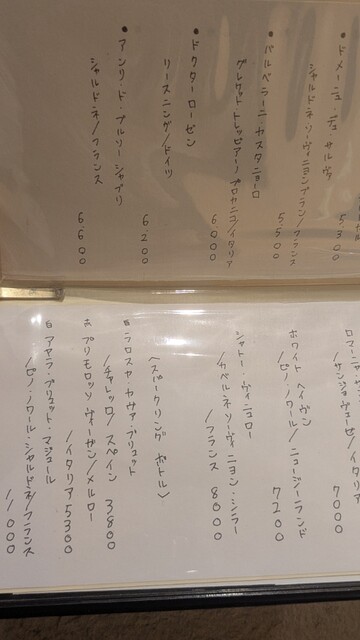 ●ドメーヌ・デュ・サルヴァ
シャルドネ・ソーヴィニヨンブラン/フランス
5300
●バルベラーニ・カスタニョーロ
グレケット トレッビアーノ プロカニコ/イタリア
5500
6000
●ドクターローゼン
リースニング/ドイツ
6200
●アンリ・ド・ブルソー シャブリ
シャルドネ/フランス
6600
ロマーニャ
/サンジョヴェーゼ/イタリア
7000
ホワイト ヘイヴン
/ピノ・ノワール/ニュージーランド
7200
シャトー・ヴィニョロー
/カベルネ・ソーヴィニヨン・シラー
/フランス 8000
〈スパークリング ボトル〉
白 フロスサ・カヴァ・ブリュット
/チャレッロ/スペイン 3800
赤 プリモロッソ ヴィーガン/メルロー
/イタリア 5300
白 アヤラ・ブリュット・マジュール
/ピノ・ノワール・シャルドネ/フランス
11000